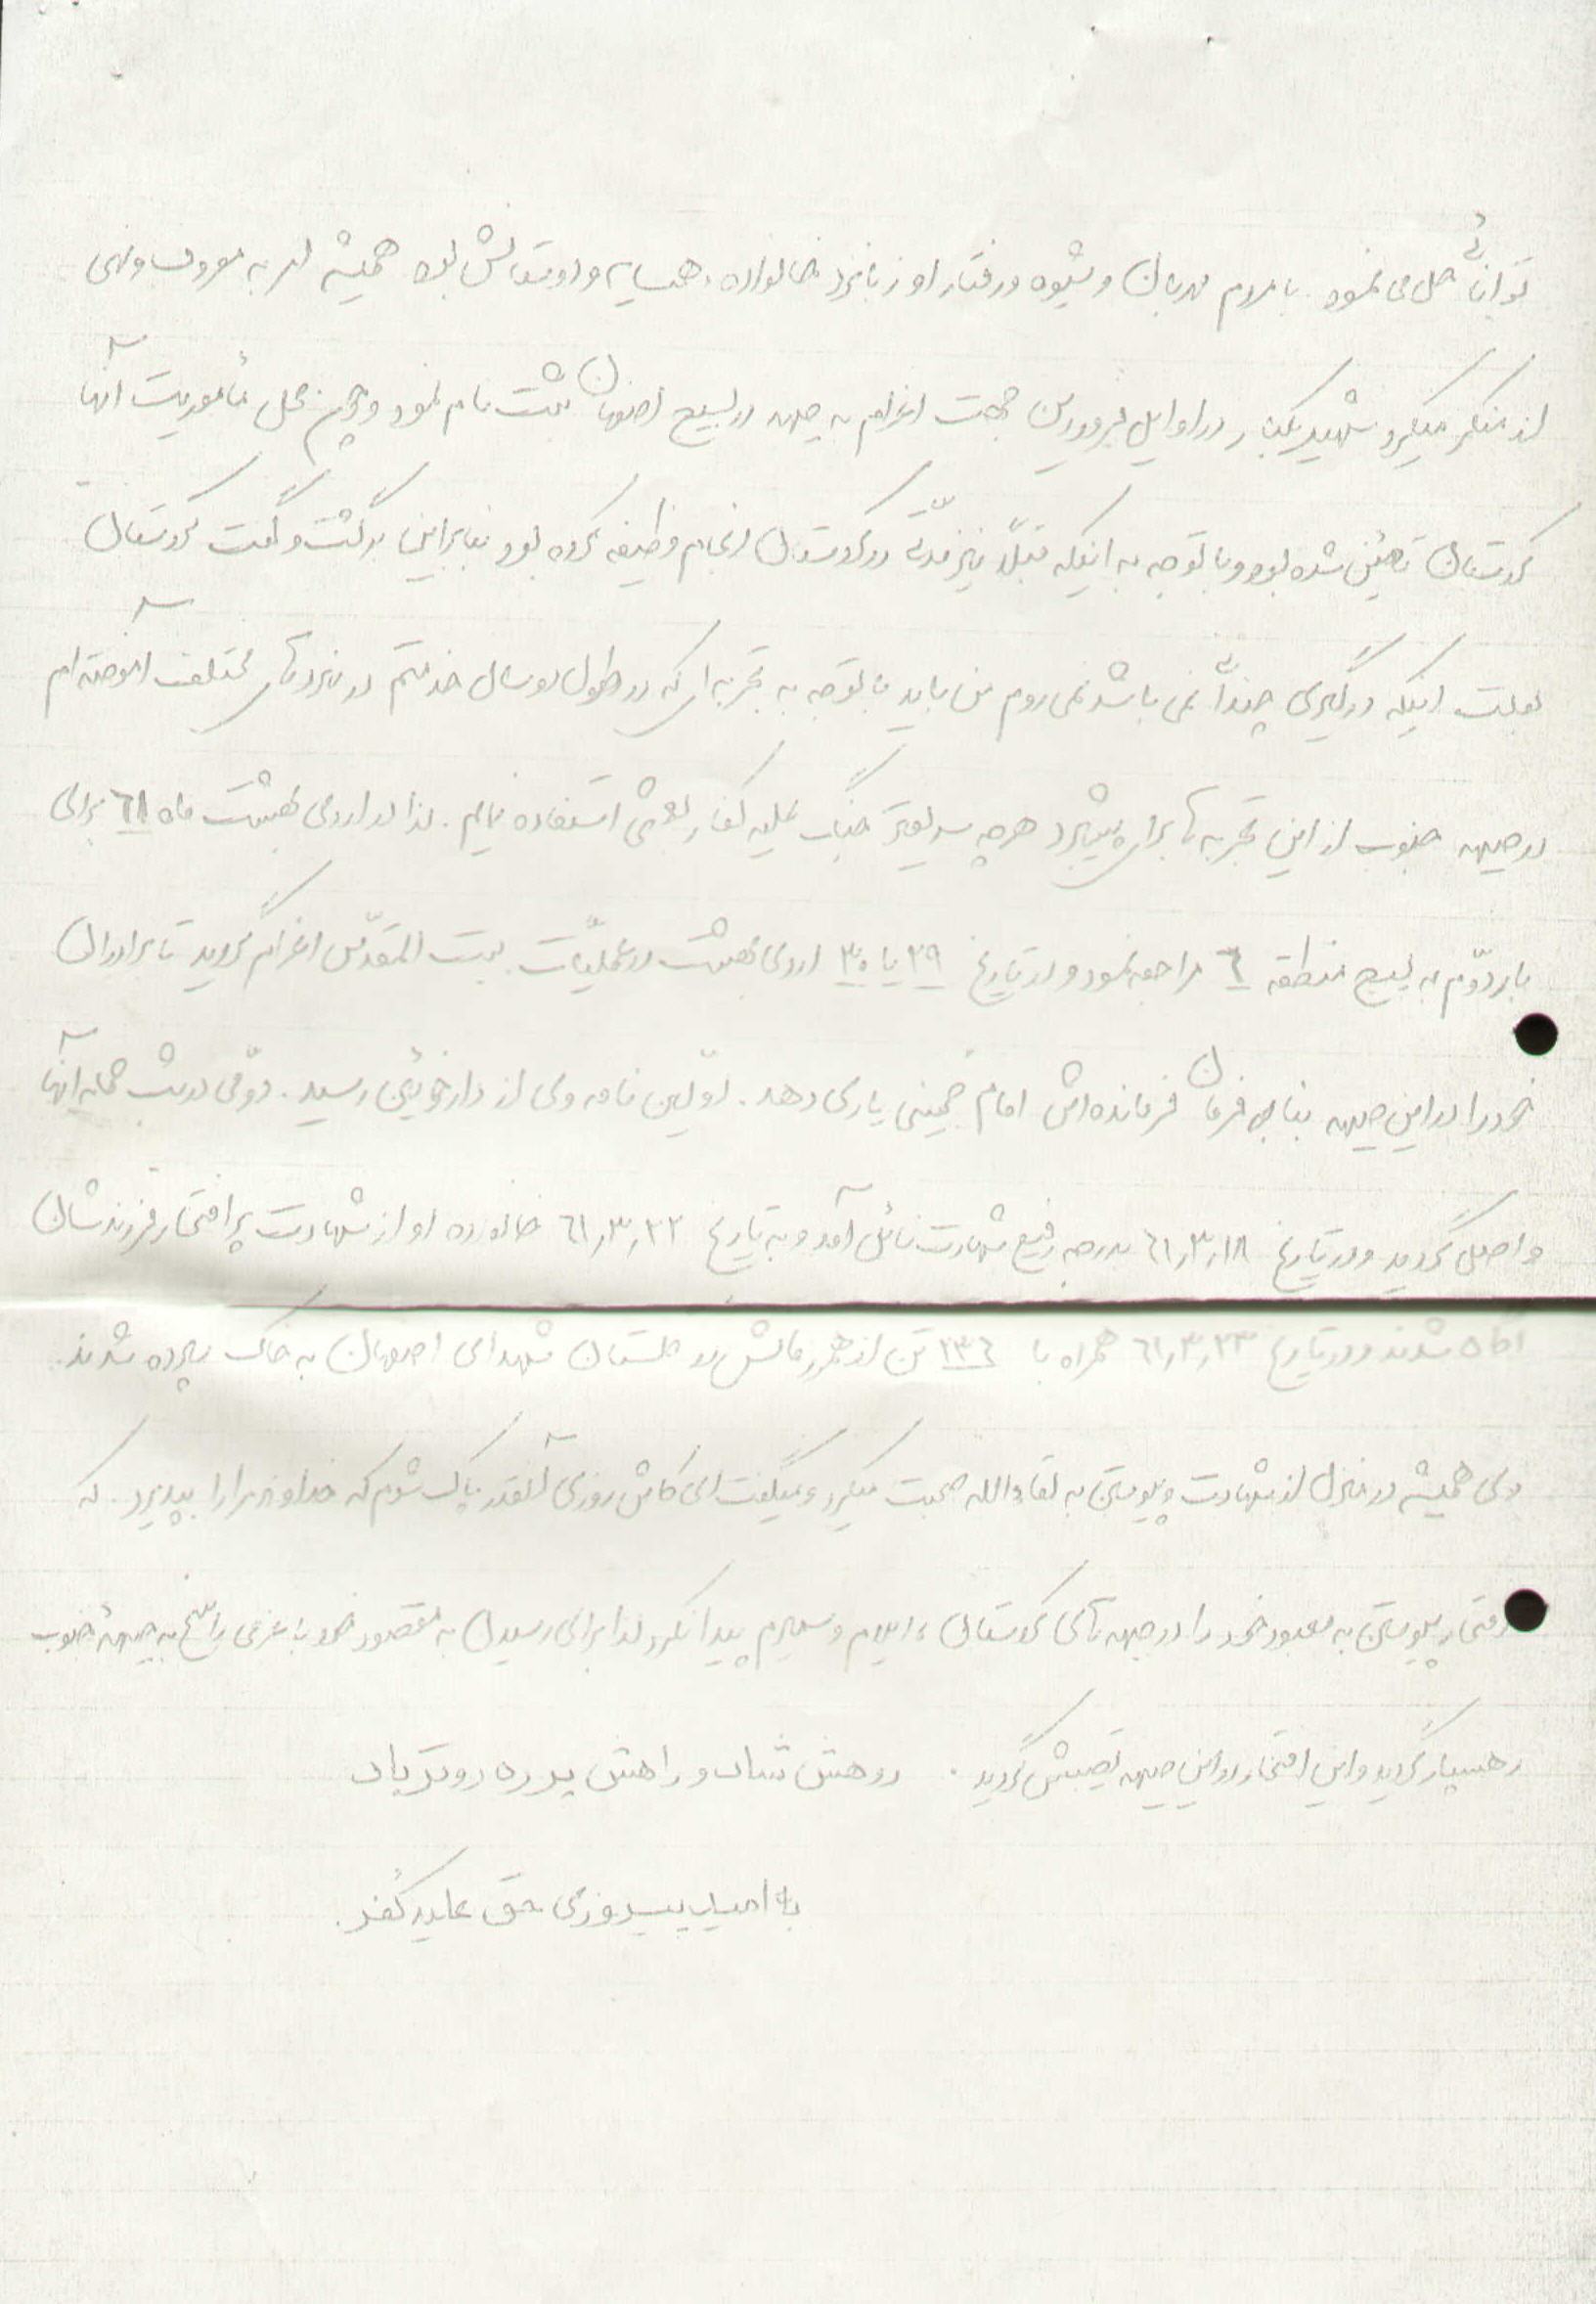 توانائی حل می نمود. با مردم مهربان و شیوه و رفتار او زبانزد خانواده، همسایه و دوستانش بود همیشه امر به معروف و نهی
از منکر میکرد شهید یکبار در اوایل فروردین جهت اعزام به جبهه در بسیج اصفهان ثبت نام نمود و چون محل مأموریت آنها
کردستان تعیین شده بود و با توجه به اینکه قبلاً نیز مدتی در کردستان انجام وظیفه کرده بود بنابراین برگشت و گفت کردستان
بعلت اینکه درگیری چندانی نمی باشد نمی روم من باید با توجه به تجربه ای که در طول دو سال خدمتم در نبردهای مختلف آموخته ام
در جبهه جنوب از این تجربه ها برای پیشبرد هر چه سریعتر جنگ علیه کفار بعثی استفاده نمایم. لذا در اردی بهشت ماه ٦١ برای
بار دوّم به بسیج منطقه ٢ مراجعه نمود و در تاریخ ٢٩ یا ٣٠ اردی بهشت در عملیّات بیت المقدّس اعزام گردید تا برادران
خود را در این جبهه بنا به فرمان فرمانده اش امام خمینی یاری دهد. اوّلین نامه وی از دارخوئین رسید. دوّمی
واصل گردید و در تاریخ ٦١,٣,١٨ بدرجه رفیع شهادت نائل آمد و به تاریخ ٦١,٣,٢٢ خانواده او از شهادت پر افتخار فرزندشان
آگاه شدند و در تاریخ ٦١,٣,٢٣ همراه با تن از همرزمانش در گلستان شهدای اصفهان به خاک سپرده شدند.
وی همیشه در منزل از شهادت و پیوستن به لقاءالله صحبت میکرد و میگفت ای کاش روزی آنقدر پاک شوم که خداوند مرا بپذیرد. که
افتخار پیوستن به معبود خود را در جبهه های کردستان، ایلام و سمیرم پیدا نکرد لذا برای رسیدن به مقصود خود با عزمی راسخ به جبهۀ جنوب
رهسپار گردید و این افتخار در این جبهه نصیبش گردید. روحش شاد و راهش پر ره رو تر باد
به امید پیروزی حق علیه کفر.